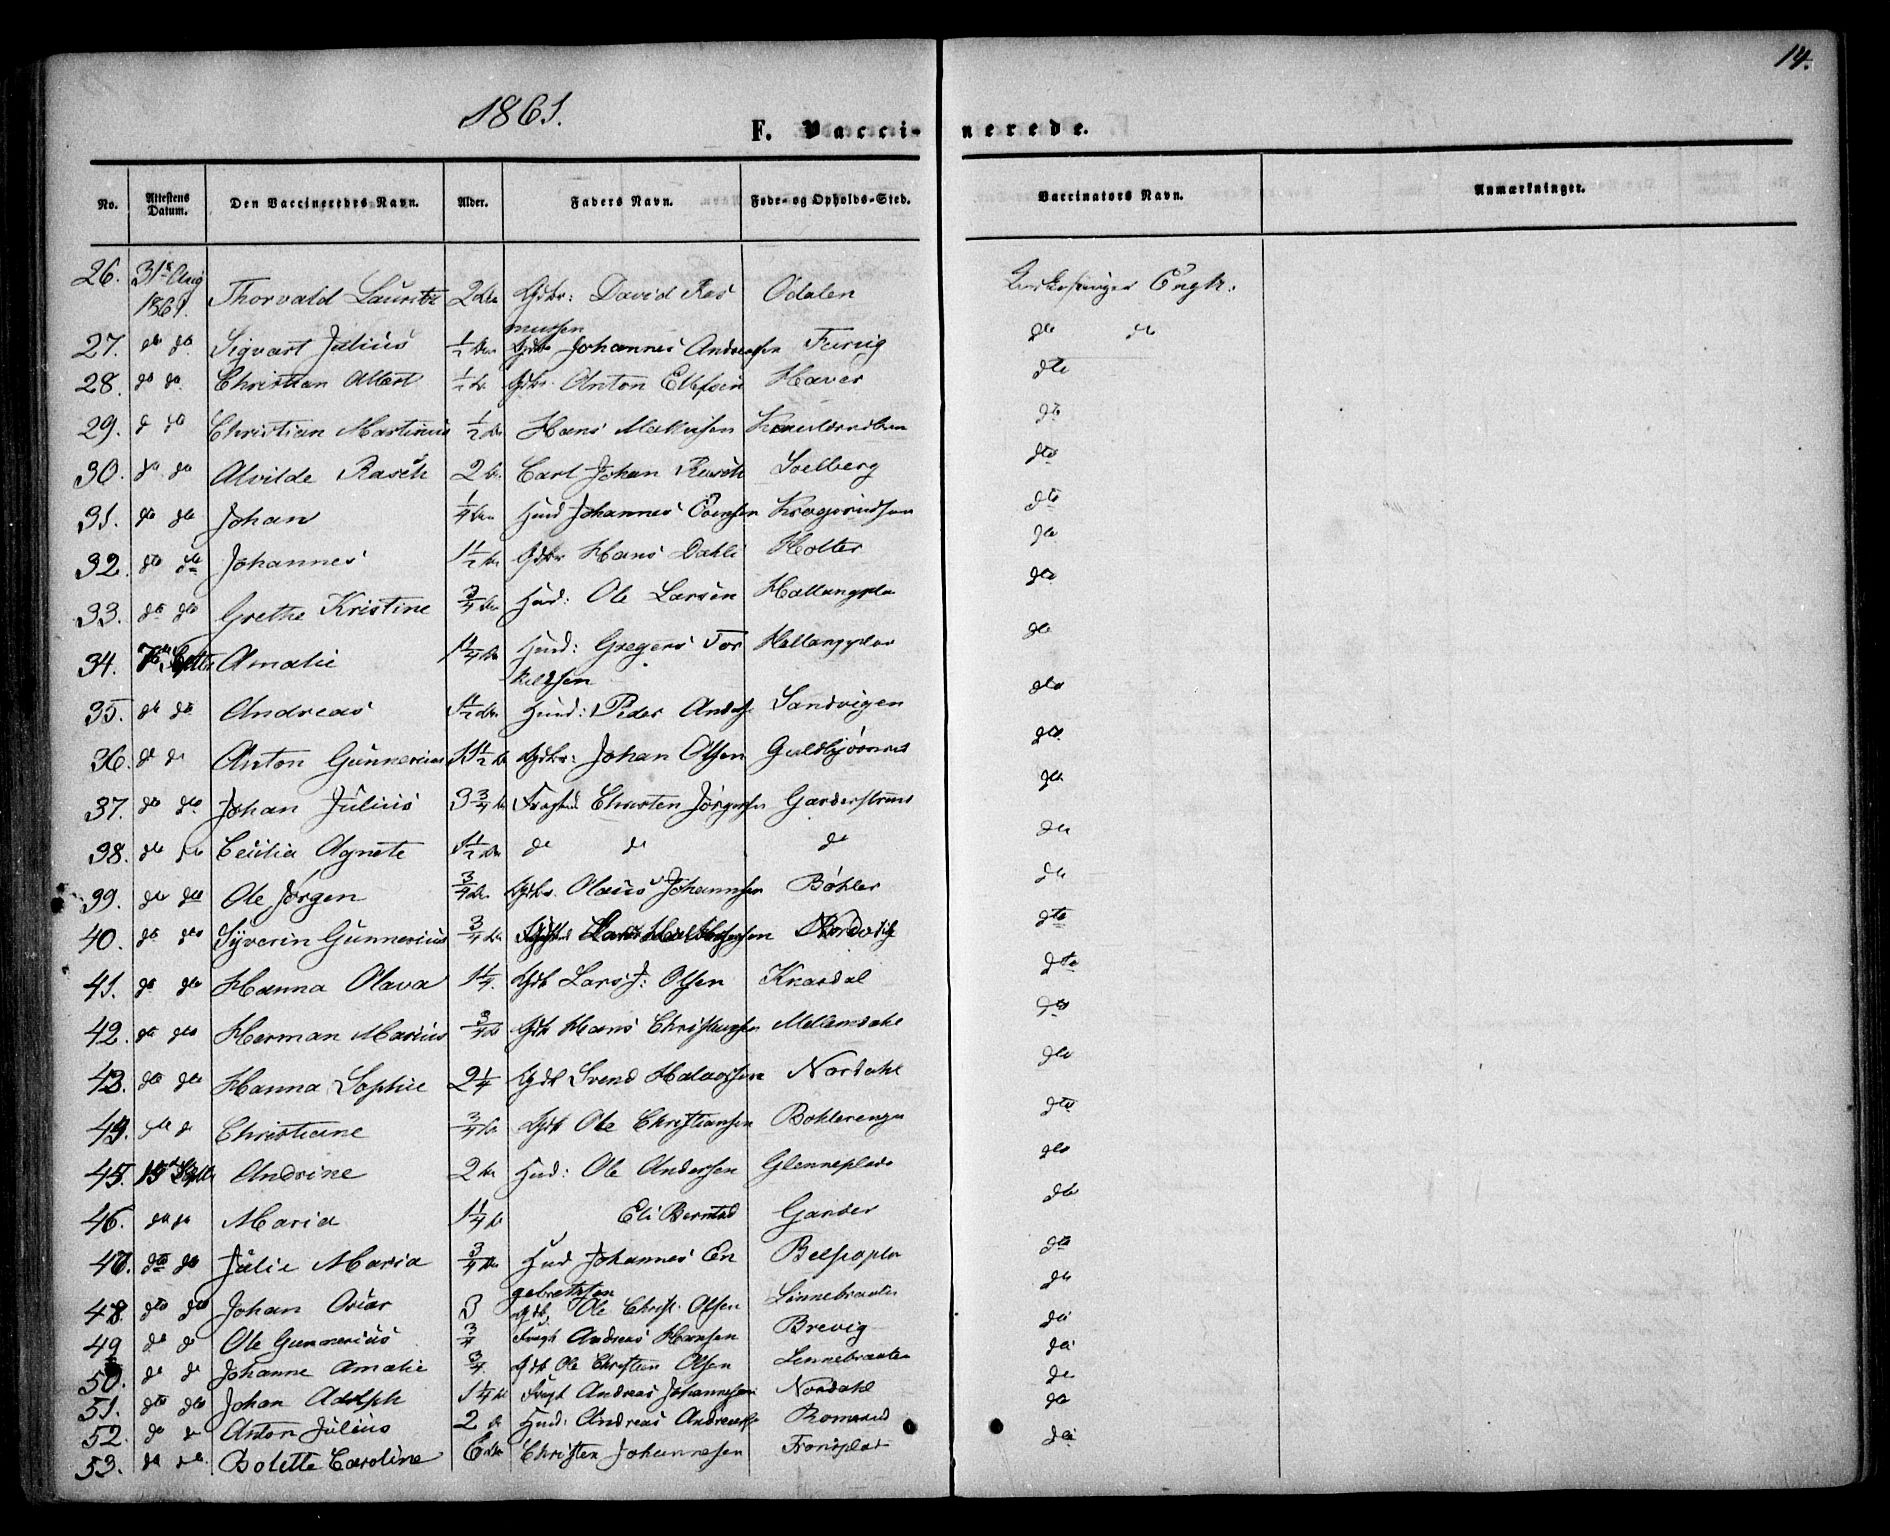 14.
1861.
F. Vaccinerede.
No. Attestens Datum. Den Vaccineredes Navn. Alder. Faders Navn. Føde- og Opholds-Sted. Vaccinators Navn. Anmærkninger.
26. 31te Aug 1861. Thorvald Lauritz 2 Gdbr: David Ras Odalen Engh:
mussen
27. do do Sigvart Julius 1/2 Gdbr Johannes Andersen do do
28. do do Christian Albert 1/2 Gdbr. Anton Ellefsen Haver dto
29. d do Christian Martinus 1/2 Hans Mathisen dto
30. do do Alvilde Rasch 2 Carl Johan Rasch Solberg dto
31. do do Johan 1/4 Huusd Johannes Evensen dto
32. do do Johannes 1 1/2 Gdbr Hans Dahli Holter do
33. do do Grethe Kristine 3/4 Hmd: Ole Larsen Hallangspla do
34. 7de Septb Amalie 1 1/4 Hmd: Gregers Tor Hallangplas do
kelsen
35. do do Andreas 1 1/2 Hmd: Peder Anders Sandvigen do
36. do do Anton Gunnerius 1 1/2 Gdbr: Johan Olsen Guldbjørnrus do
37. do do Johan Julius 3 3/4 Christen Jørgensen do
38. do do Cecilia Agnete 1 1/2 do do do do
39. do do Ole Jørgen 3/4 Gdbr. Olaus Johannesen Bøhler do
40. do do Syverin Gunnerius 3/4 Nordvig dto
41. do do Hanna Olava 1 1/4. Gdb Lars J: Olsen Knardal dto
42. do do Herman Marius 3/4 Gdb Hans Christensen Mellemdahl do
43. do do Hanna Sophie 2 1/4 Gdb Svend Halvorsen Nordahl do
44. do d Christiane 3/4 Gdb Ole Christiansen Bøhlerenga dto
45. 15 Septb Andrine 2 Hmd: Ole Andersen Glenneplads do
46. do do Maria 1 1/4 Eli Berntsd Gander do
47. do do Julie Maria 3/4 Hmd Johannes En dto
gebretsen
48. do do Johan Oscar 3 Gdb Ole Christ. Olsen Linnebraaten do
49 do do Ole Gunnerius 3/4 Andreas Hansen Brevig do
50. do do Johanne Amalie 3/4. Gdb Ole Christian Olsen Linnebraaten do
51. do do Johan Adolph 1 1/4 Andreas Johannesen Nordahl do
52. do do Anton Julius 2 Hmd: Andreas Andreasen Romsrud do
53. do do Bolette Caroline 6 Christen Johannesen do